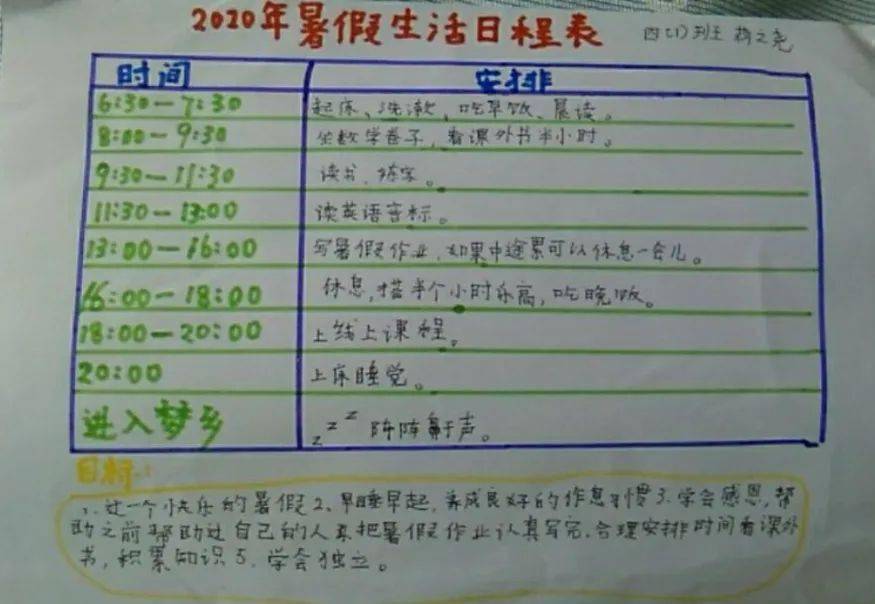 2020年暑假生活日程表 四(1)班
时间 安排
6:30—7:30 起床、洗漱、吃早饭、晨读。
8:00—9:30 坐数学卷子，看课外书半小时。
9:30—11:30 读书、练字。
11:30—13:00 读英语音标。
13:00—16:00 写暑假作业，如果中途累可以休息一会儿。
16:00—18:00 休息，搭半个小时乐高，吃晚饭。
18:00—20:00 上线上课程。
20:00 上床睡觉。
进入梦乡 z z z 阵阵鼾声。
目标：
1.过一个快乐的暑假2、早睡早起，养成良好的作息习惯3.学会感恩，帮
助之前帮助过自己的人 把暑假作业认真写完，合理安排时间看课外
书，积累知识5、学会独立。